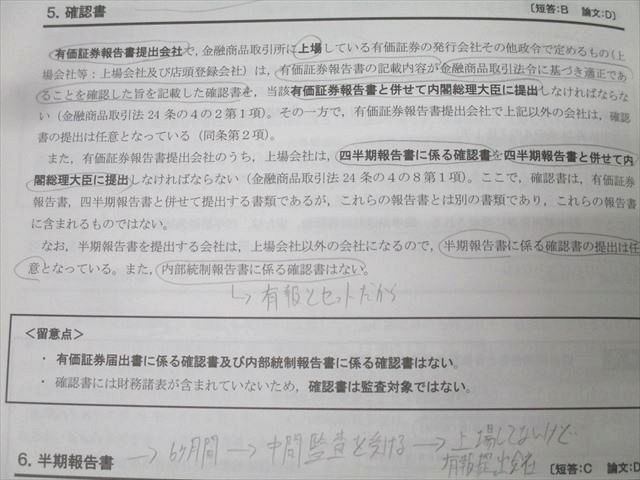 5. 確認書
〔短答：B 論文：D〕
有価証券報告書提出会社で，金融商品取引所に上場している有価証券の発行会社その他政令で定めるもの（上
場会社等：上場会社及び店頭登録会社）は，有価証券報告書の記載内容が金融商品取引法令に基づき適正であ
ることを確認した旨を記載した確認書を，当該有価証券報告書と併せて内閣総理大臣に提出しなければならな
い（金融商品取引法 24 条の４の２第１項）。その一方で，有価証券報告書提出会社で上記以外の会社は，確認
書の提出は任意となっている（同条第２項）。
また，有価証券報告書提出会社のうち，上場会社は，四半期報告書に係る確認書を四半期報告書と併せて内
閣総理大臣に提出しなければならない（金融商品取引法 24 条の４の８第１項）。ここで，確認書は，有価証券
報告書，四半期報告書と併せて提出する書類であるが，これらの報告書とは別の書類であり，これらの報告書
に含まれるものではない。
なお，半期報告書を提出する会社は，上場会社以外の会社になるので，半期報告書に係る確認書の提出は任
意となっている。また，内部統制報告書に係る確認書はない。
↳ 有報とセットだから
＜留意点＞
・ 有価証券届出書に係る確認書及び内部統制報告書に係る確認書はない。
・ 確認書には財務諸表が含まれていないため，確認書は監査対象ではない。
6. 半期報告書 → 6ヶ月間 → 中間監査を受ける → 上場してないけど
有報提出会社
〔短答：C 論文：D